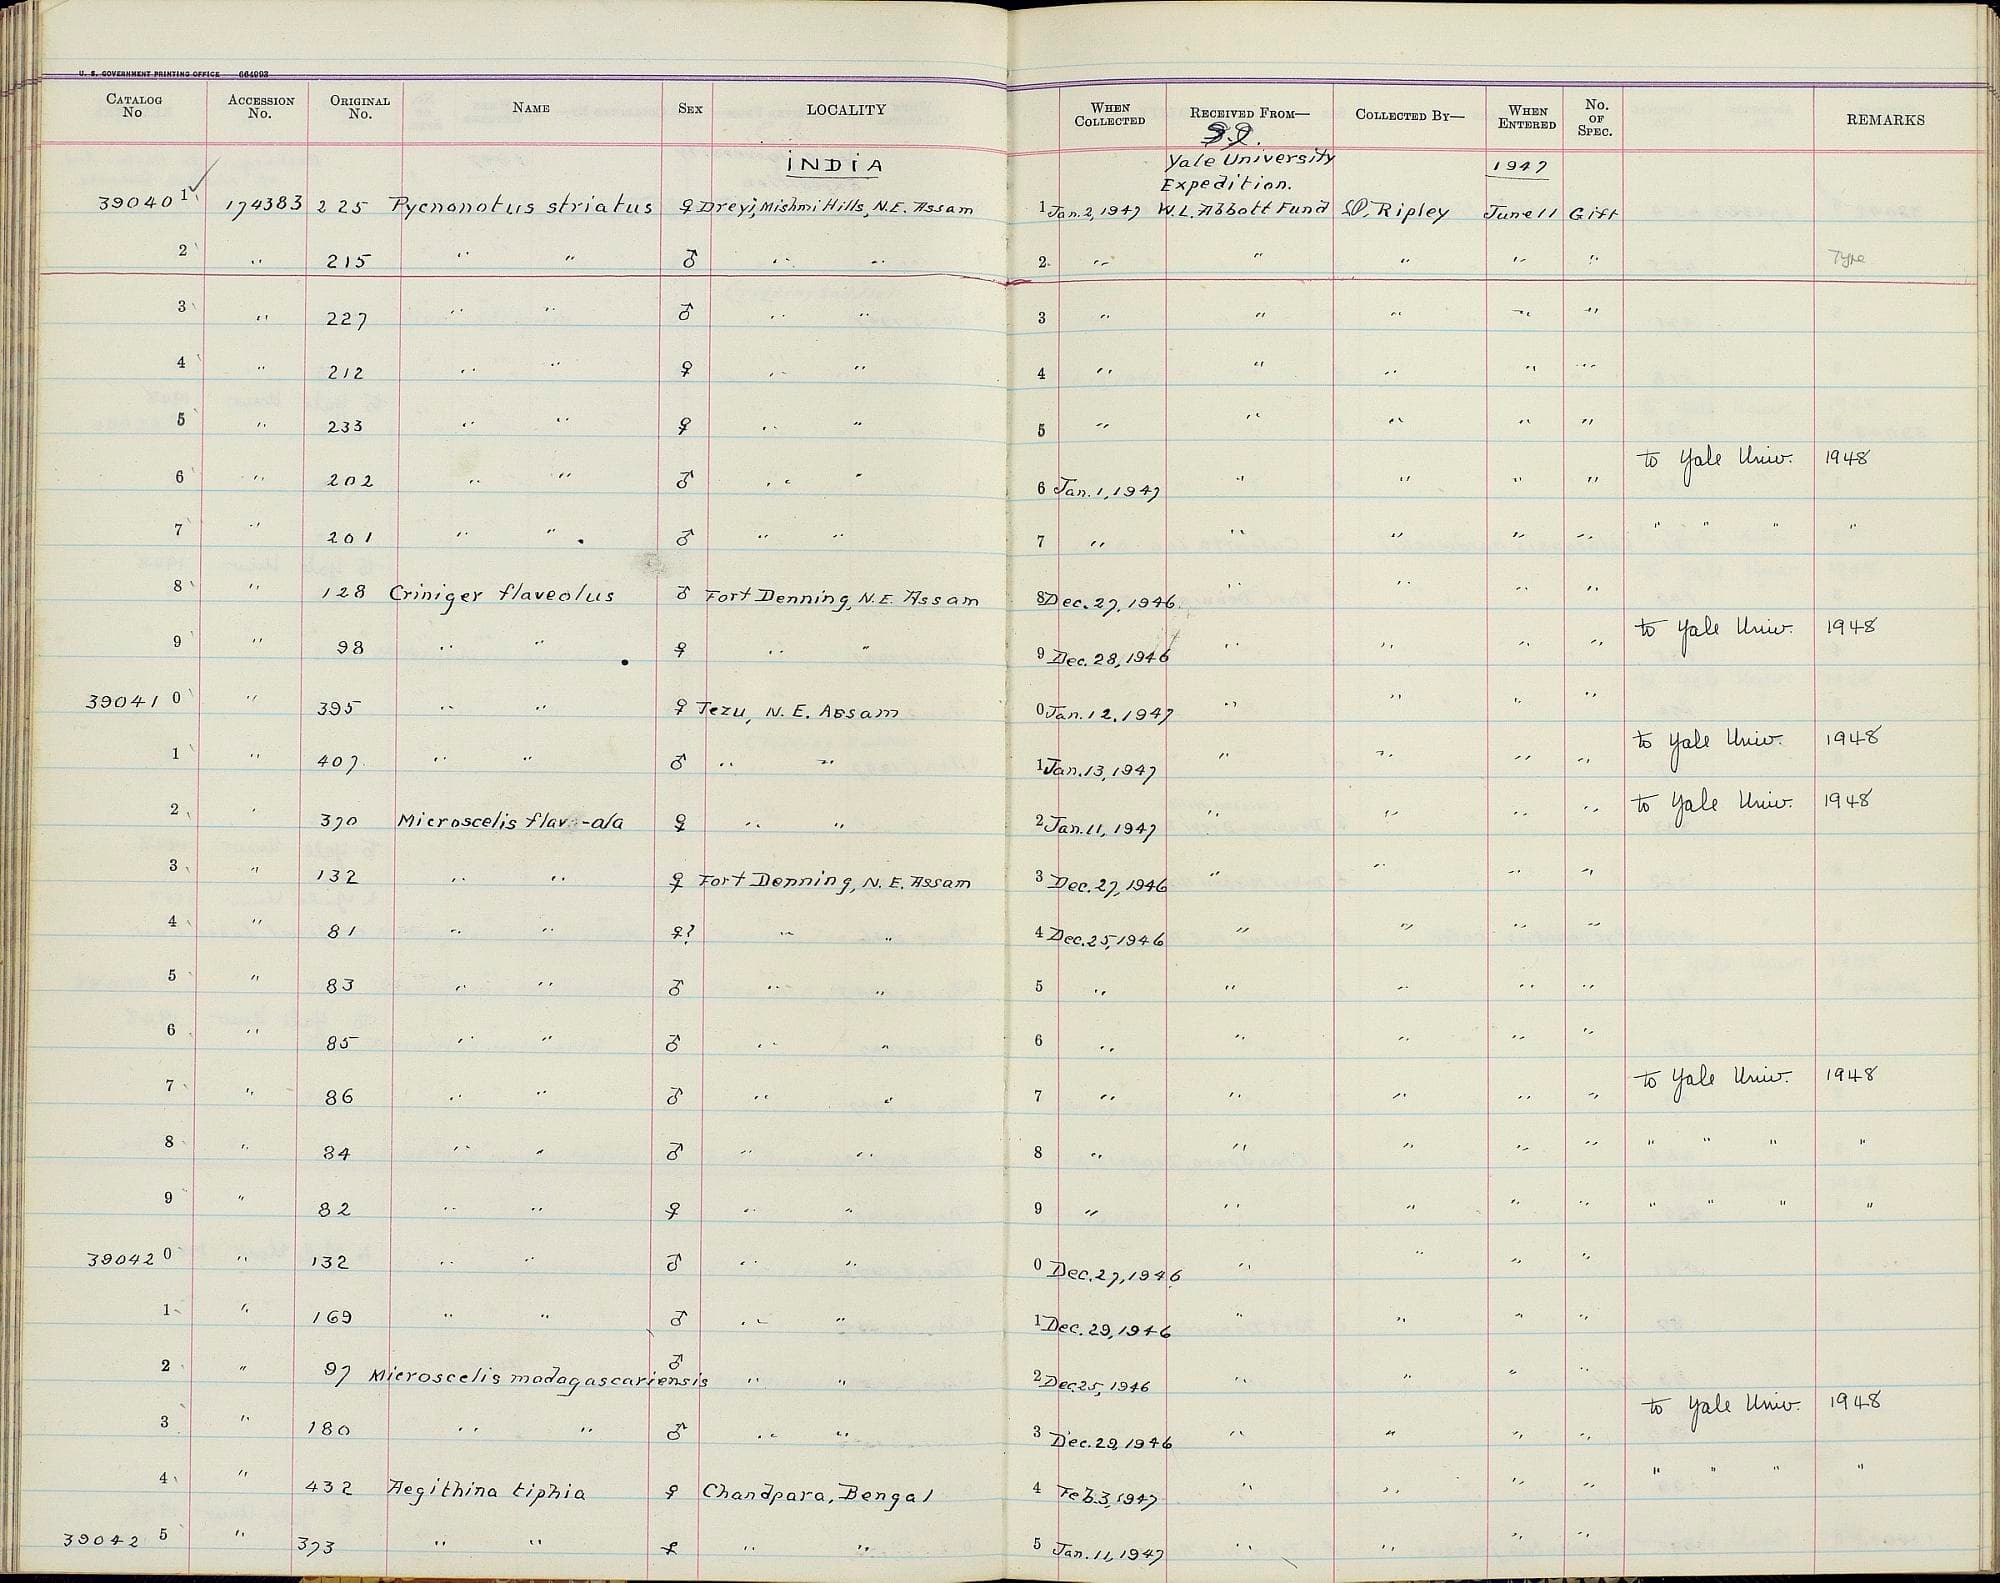 U. S. GOVERNMENT PRINTING OFFICE 664993
CATALOG No ACCESSION No. ORIGINAL No. NAME SEX LOCALITY WHEN COLLECTED RECEIVED FROM— COLLECTED BY— WHEN ENTERED NO. OF SPEC. REMARKS
INDIA Yale University 1947
Expedition.
39040 1 174383 225 Pycnonotus striatus ♀ Dreyi, Mishmi Hills, N.E. Assam 1 Jan. 2, 1947 W.L. Abbott Fund S.D. Ripley June 11 Gift
2 " 215 " " ♂ " " 2 " " " " " Type
3 " 227 " " ♂ " " 3 " " " " "
4 " 212 " " ♀ " " 4 " " " " "
5 " 233 " " ♀ " " 5 " " " " "
6 " 202 " " ♂ " " 6 Jan. 1, 1947 " " " " to Yale Univ. 1948
7 " 201 " " ♂ " " 7 " " " " " " " " "
8 " 128 Criniger flaveolus ♂ Fort Denning, N.E. Assam 8 Dec. 27, 1946 " " " "
9 " 98 " " ♀ " " 9 Dec. 28, 1946 " " " " to Yale Univ. 1948
39041 0 " 395 " " ♀ Tezu, N. E. Assam 0 Jan. 12, 1947 " " " "
1 " 407 " " ♂ " " 1 Jan. 13, 1947 " " " " to Yale Univ. 1948
2 " 370 Microscelis ♀ " " 2 Jan. 11, 1947 " " " " to Yale Univ. 1948
3 " 132 " " ♀ Fort Denning, N. E. Assam 3 Dec. 27, 1946 " " " "
4 " 81 " " ♀? " " 4 Dec. 25, 1946 " " " "
5 " 83 " " ♂ " " 5 " " " " "
6 " 85 " " ♂ " " 6 " " " " "
7 " 86 " " ♂ " " 7 " " " " " to Yale Univ. 1948
8 " 84 " " ♂ " " 8 " " " " " " " " "
9 " 82 " " ♀ " " 9 " " " " " " " " "
39042 0 " 132 " " ♂ " " 0 Dec. 27, 1946 " " " "
1 " 169 " " ♂ " " 1 Dec. 29, 1946 " " " "
2 " 97 Microscelis madagascariensis ♂ " " 2 Dec 25, 1946 " " " "
3 " 180 " " ♂ " " 3 Dec. 29, 1946 " " " " to Yale Univ. 1948
4 " 432 Aegithina tiphia ♀ Chandpara, Bengal 4 Feb. 3, 1947 " " " " " " " "
39042 5 " 373 " " ♀ " " 5 Jan. 11, 1947 " " " "